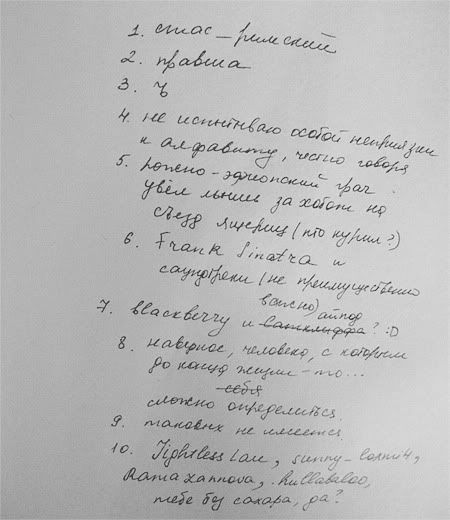 1. стас-римский
2. правша
3. ъ
4. не испытываю особой неприязни
к алфавиту, честно говоря
5. южно-эфиопский грач
увёл мышь за хобот на
съезд ящериц (кто курил?)
6. Frank Sinatra и
саундтреки (не преимущественно
важно)
7. blackberry и айпод? :D
8. наверное, человека, с которым
до конца жизни-то...
себя
сложно определиться.
9. таковых не имеется.
10. Tightless law, sunny-
Ramazannova, hullabaloo,
тебе без сахара, да?